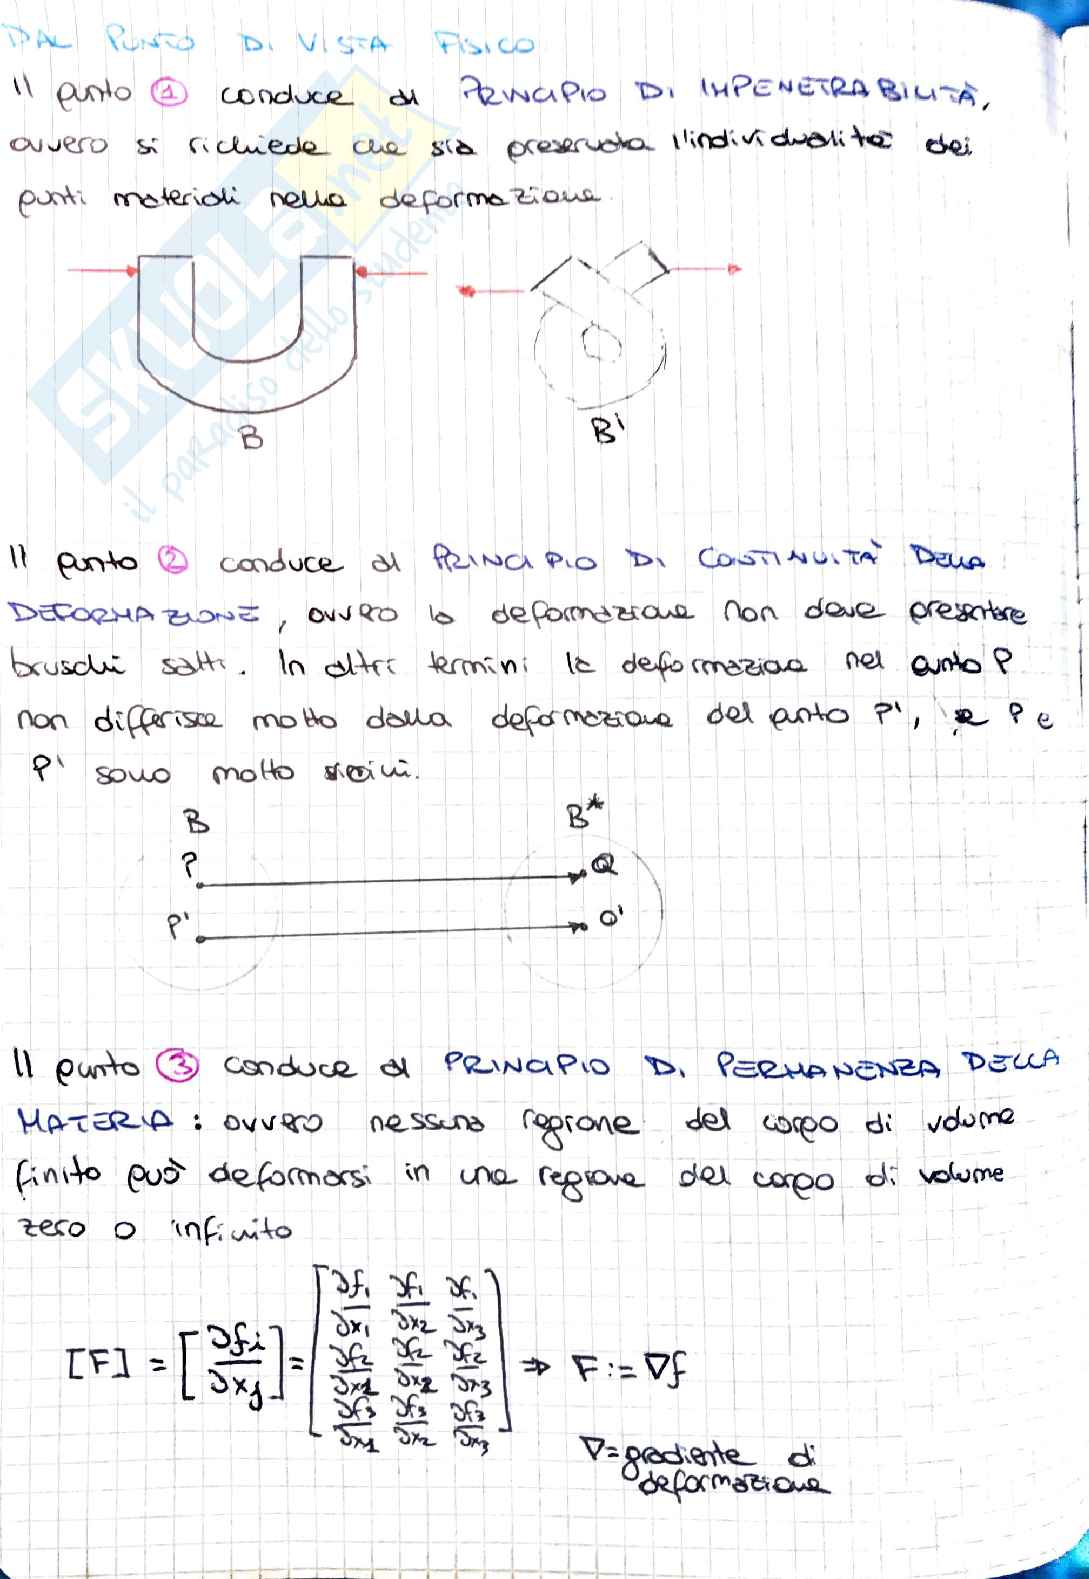 DAL PUNTO DI VISTA FISICO
Il punto ① conduce al PRINCIPIO DI IMPENETRABILITÀ,
ovvero si richiede che sia preservata l'individualità dei
punti materiali nella deformazione.
SKUOLA.net
il paradiso dello studente
B
B'
Il punto ② conduce al PRINCIPIO DI CONTINUITÀ DELLA
DEFORMAZIONE, ovvero la deformazione non deve presentare
bruschi salti. In altri termini la deformazione nel punto P
non differisce molto dalla deformazione del punto P', se P e
P' sono molto vicini.
B B*
P Q
P' Q'
Il punto ③ conduce al PRINCIPIO DI PERMANENZA DELLA
MATERIA: ovvero nessuna regione del corpo di volume
finito può deformarsi in una regione del corpo di volume
zero o infinito
[F] = [∂fi/∂xj] = [∂f1/∂x1 ∂f1/∂x2 ∂f1/∂x3 ∂f2/∂x1 ∂f2/∂x2 ∂f2/∂x3 ∂f3/∂x1 ∂f3/∂x2 ∂f3/∂x3] ⇒ F := ∇f
∇=gradiente di
deformazione